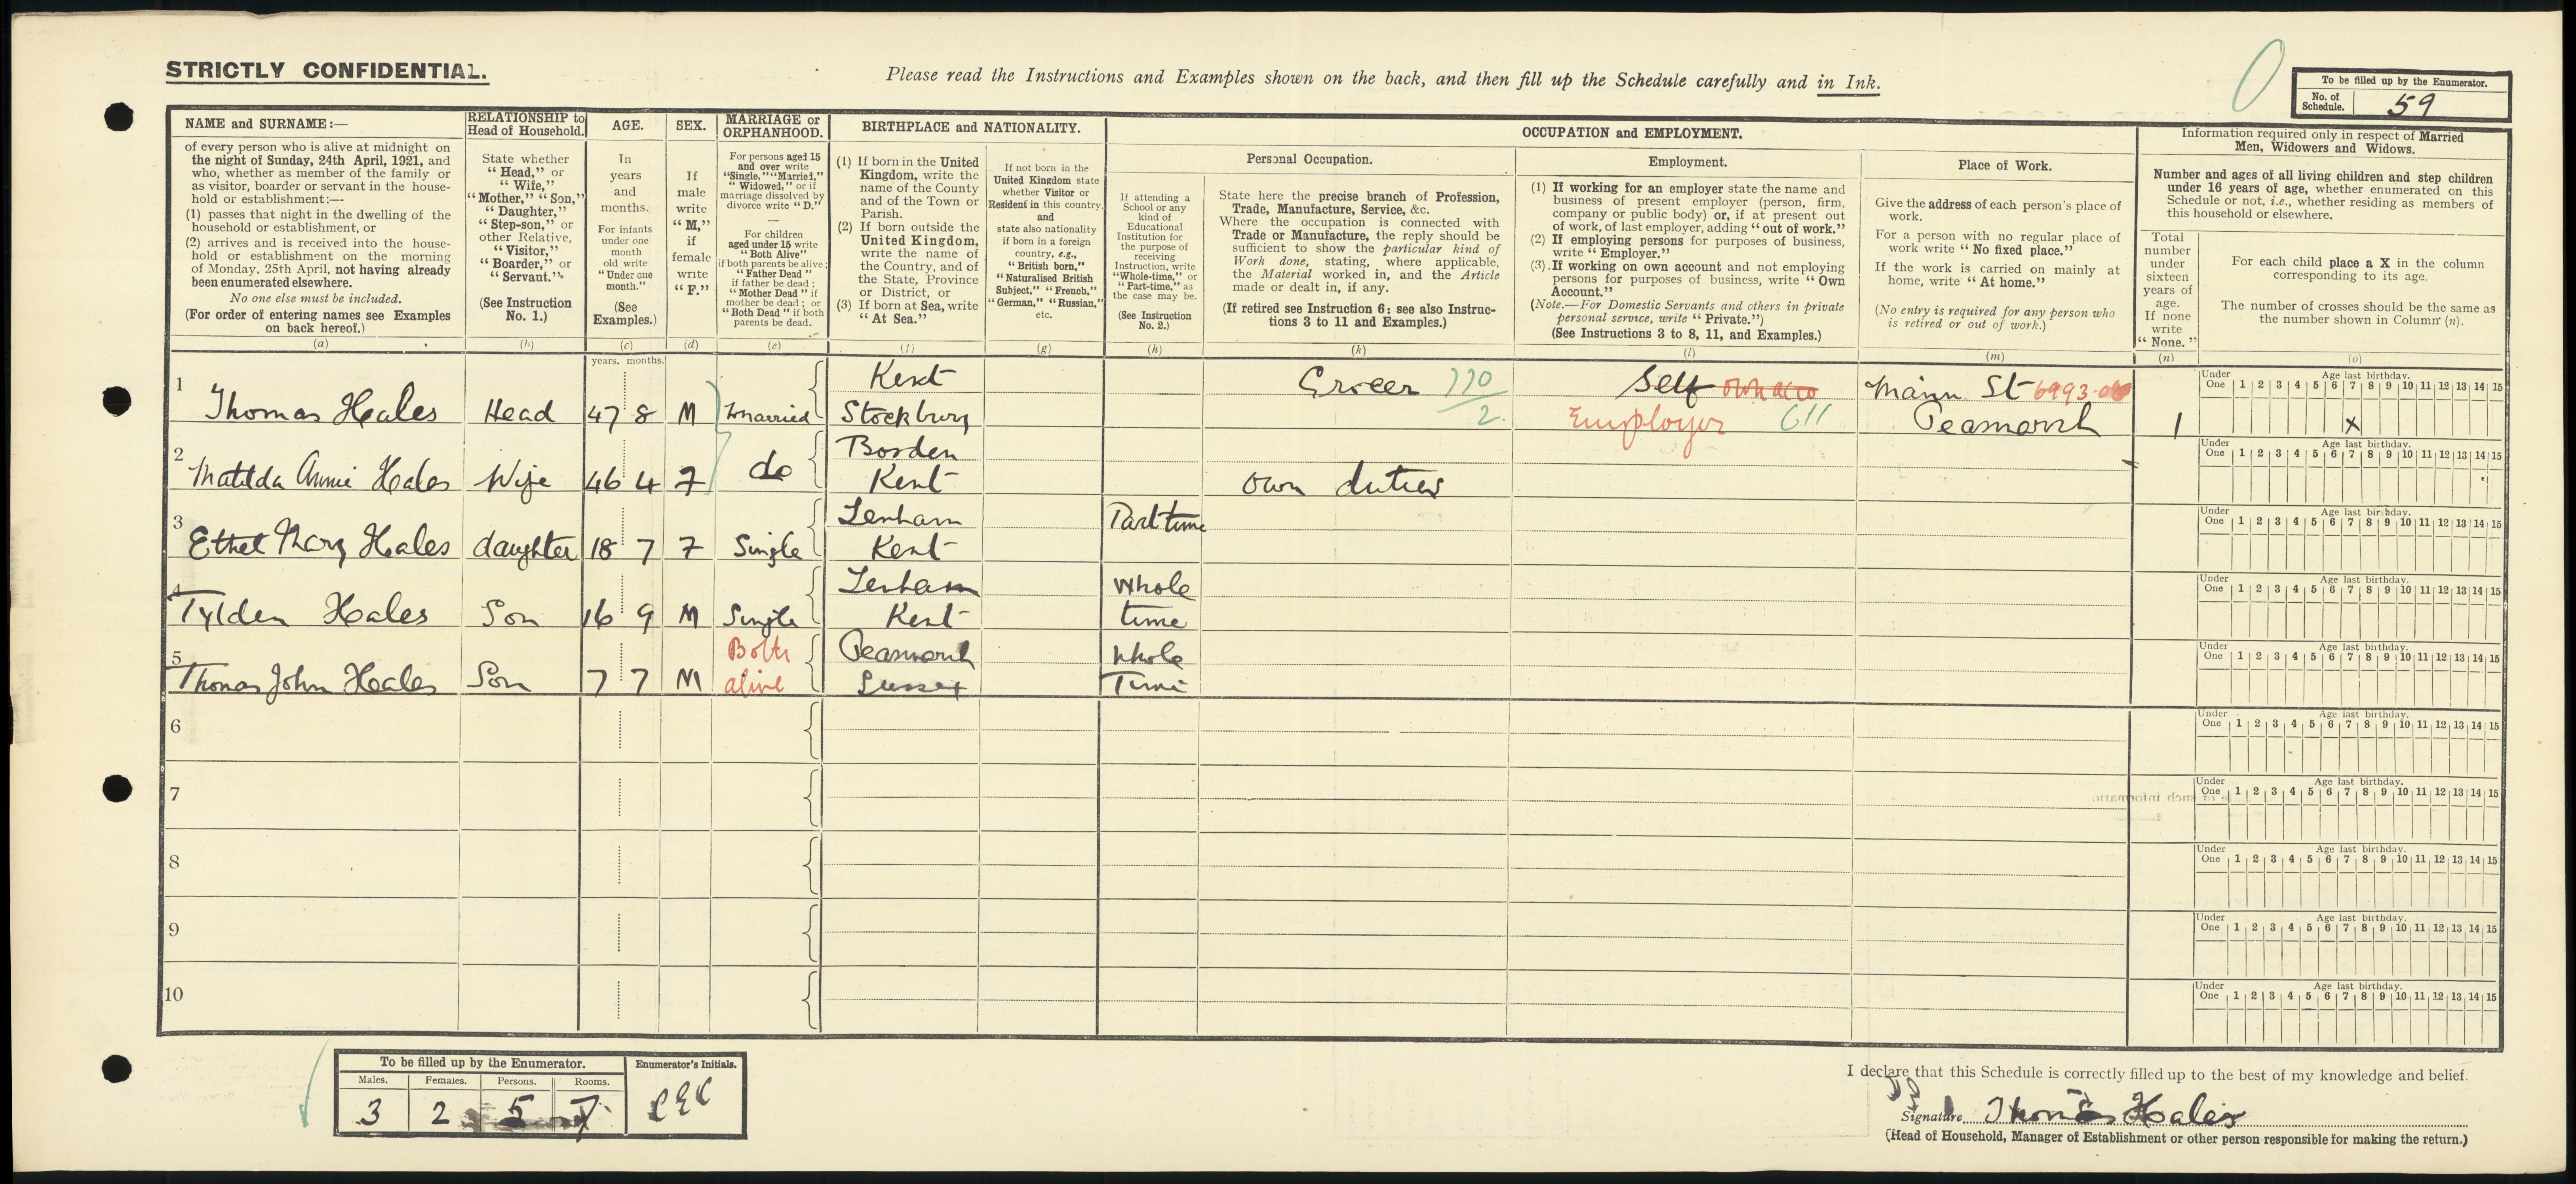 STRICTLY CONFIDENTIAL.
Please read the Instructions and Examples shown on the back, and then fill up the Schedule carefully and in Ink.
To be filled up by the Enumerator.
No. of Schedule. 59
NAME and SURNAME:—
of every person who is alive at midnight on
the night of Sunday, 24th April, 1921, and
who, whether as member of the family or
as visitor, boarder or servant in the house-
hold or establishment:—
(1) passes that night in the dwelling of the
household or establishment, or
(2) arrives and is received into the house-
hold or establishment on the morning
of Monday, 25th April, not having already
been enumerated elsewhere.
No one else must be included.
(For order of entering names see Examples
on back hereof.)
(a)
RELATIONSHIP to
Head of Household.
State whether
"Head," or
"Wife,"
"Mother," "Son,"
"Daughter,"
"Step-son," or
other Relative,
"Visitor,"
"Boarder," or
"Servant."
(See Instruction
No. 1.)
(b)
AGE.
In
years
and
months.
For infants
under one
month
old write
"Under one
month."
(See
Examples.)
(c)
years. months.
SEX.
If
male
write
"M,"
if
female
write
"F."
(d)
MARRIAGE or
ORPHANHOOD.
For persons aged 15
and over write
"Single," "Married,"
"Widowed," or if
marriage dissolved by
divorce write "D."
For children
aged under 15 write
"Both Alive"
if both parents be alive;
"Father Dead"
if father be dead;
"Mother Dead" if
mother be dead; or
"Both Dead" if both
parents be dead.
(e)
BIRTHPLACE and NATIONALITY.
(1) If born in the United
Kingdom, write the
name of the County
and of the Town or
Parish.
(2) If born outside the
United Kingdom,
write the name of
the Country, and of
the State, Province
or District, or
(3) If born at Sea, write
"At Sea."
(f)
If not born in the
United Kingdom state
whether Visitor or
Resident in this country,
and
state also nationality
if born in a foreign
country, e.g.,
"British born,"
"Naturalised British
Subject," "French,"
"German," "Russian,"
etc.
(g)
OCCUPATION and EMPLOYMENT.
If attending a
School or any
kind of
Educational
Institution for
the purpose of
receiving
Instruction, write
"Whole-time," or
"Part-time," as
the case may be.
(See Instruction
No. 2.)
(h)
Personal Occupation.
State here the precise branch of Profession,
Trade, Manufacture, Service, &c.
Where the occupation is connected with
Trade or Manufacture, the reply should be
sufficient to show the particular kind of
Work done, stating, where applicable,
the Material worked in, and the Article
made or dealt in, if any.
(If retired see Instruction 6; see also Instruc-
tions 3 to 11 and Examples.)
(k)
Employment.
(1) If working for an employer state the name and
business of present employer (person, firm,
company or public body) or, if at present out
of work, of last employer, adding "out of work."
(2) If employing persons for purposes of business,
write "Employer."
(3) If working on own account and not employing
persons for purposes of business, write "Own
Account."
(Note.—For Domestic Servants and others in private
personal service, write "Private.")
(See Instructions 3 to 8, 11, and Examples.)
(l)
Place of Work.
Give the address of each person's place of
work.
For a person with no regular place of
work write "No fixed place."
If the work is carried on mainly at
home, write "At home."
(No entry is required for any person who
is retired or out of work.)
(m)
Information required only in respect of Married
Men, Widowers and Widows.
Number and ages of all living children and step children
under 16 years of age, whether enumerated on this
Schedule or not, i.e., whether residing as members of
this household or elsewhere.
Total
number
under
sixteen
years of
age.
If none
write
"None."
(n)
For each child place a X in the column
corresponding to its age.
The number of crosses should be the same as
the number shown in Column (n).
(o)
1 Thomas Hales Head 47 8 M Married Kent Stockbury Grocer 770/2 Self own acco Employer 611 Main St Peasmarsh 1 X
Under One Age last birthday. 1 2 3 4 5 6 7 8 9 10 11 12 13 14 15
2 Matilda Annie Hales Wife 46 4 F do Borden Kent own duties
Under One Age last birthday. 1 2 3 4 5 6 7 8 9 10 11 12 13 14 15
3 Ethel Mary Hales daughter 18 7 F Single Lenham Kent Part time
Under One Age last birthday. 1 2 3 4 5 6 7 8 9 10 11 12 13 14 15
4 Tylden Hales Son 16 9 M Single Lenham Kent Whole time
Under One Age last birthday. 1 2 3 4 5 6 7 8 9 10 11 12 13 14 15
5 Thomas John Hales Son 7 7 M Both alive Peasmarsh Sussex Whole Time
Under One Age last birthday. 1 2 3 4 5 6 7 8 9 10 11 12 13 14 15
6
Under One Age last birthday. 1 2 3 4 5 6 7 8 9 10 11 12 13 14 15
7
Under One Age last birthday. 1 2 3 4 5 6 7 8 9 10 11 12 13 14 15
8
Under One Age last birthday. 1 2 3 4 5 6 7 8 9 10 11 12 13 14 15
9
Under One Age last birthday. 1 2 3 4 5 6 7 8 9 10 11 12 13 14 15
10
Under One Age last birthday. 1 2 3 4 5 6 7 8 9 10 11 12 13 14 15
To be filled up by the Enumerator.
Males. Females. Persons. Rooms.
3 2 5 7
Enumerator's Initials.
I declare that this Schedule is correctly filled up to the best of my knowledge and belief.
Signature Thomas Hales
(Head of Household, Manager of Establishment or other person responsible for making the return.)